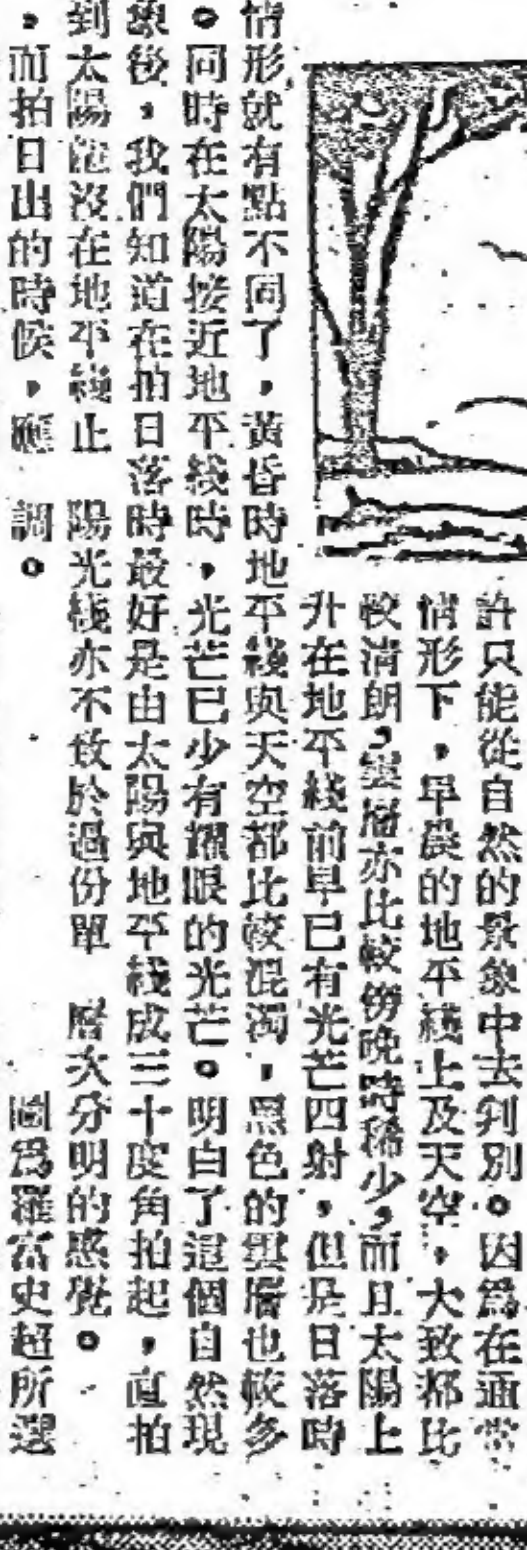 許只能從自然的景象中去判別。因爲在通常
情形下，早晨的地平綫上及天空，大致都比
較清朗，雲層亦比較傍晚時稀少，而且太陽上
升在地平綫前早已有光芒四射，但是日落時
情形就有點不同了，黃昏時地平綫與天空都比較混濁，黑色的雲層也較多
。同時在太陽接近地平綫時，光芒已少有耀眼的光芒。明白了這個自然現
象後，我們知道在拍日落時最好是由太陽與地平綫成三十度角拍起，直拍
到太陽沒在地平綫止 陽光綫亦不致於過份單 層次分明的感覺。
，而拍日出的時候，應 調。 圖爲羅富史超所選